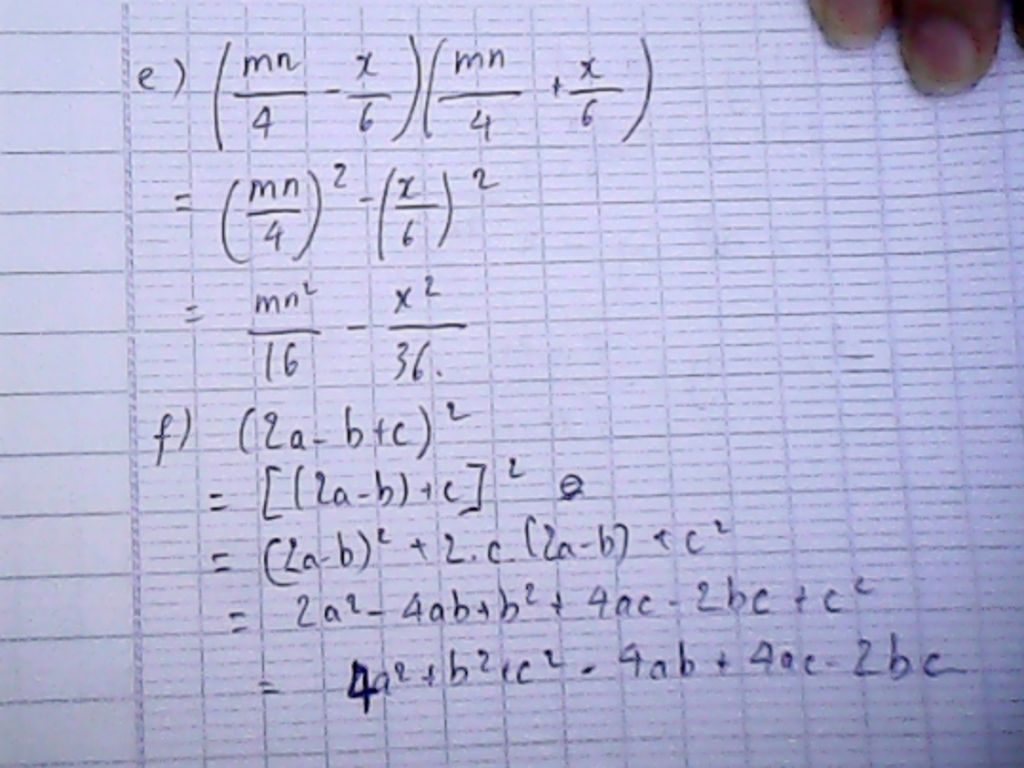 e) (mn/4 - x/6)(mn/4 + x/6)
= (mn/4)² - (x/6)²
= mn²/16 - x²/36.
f) (2a - b + c)²
= [(2a - b) + c]²
= (2a - b)² + 2.c.(2a - b) + c²
= 2a² - 4ab + b² + 4ac - 2bc + c²
= 4a² + b² + c² - 4ab + 4ac - 2bc